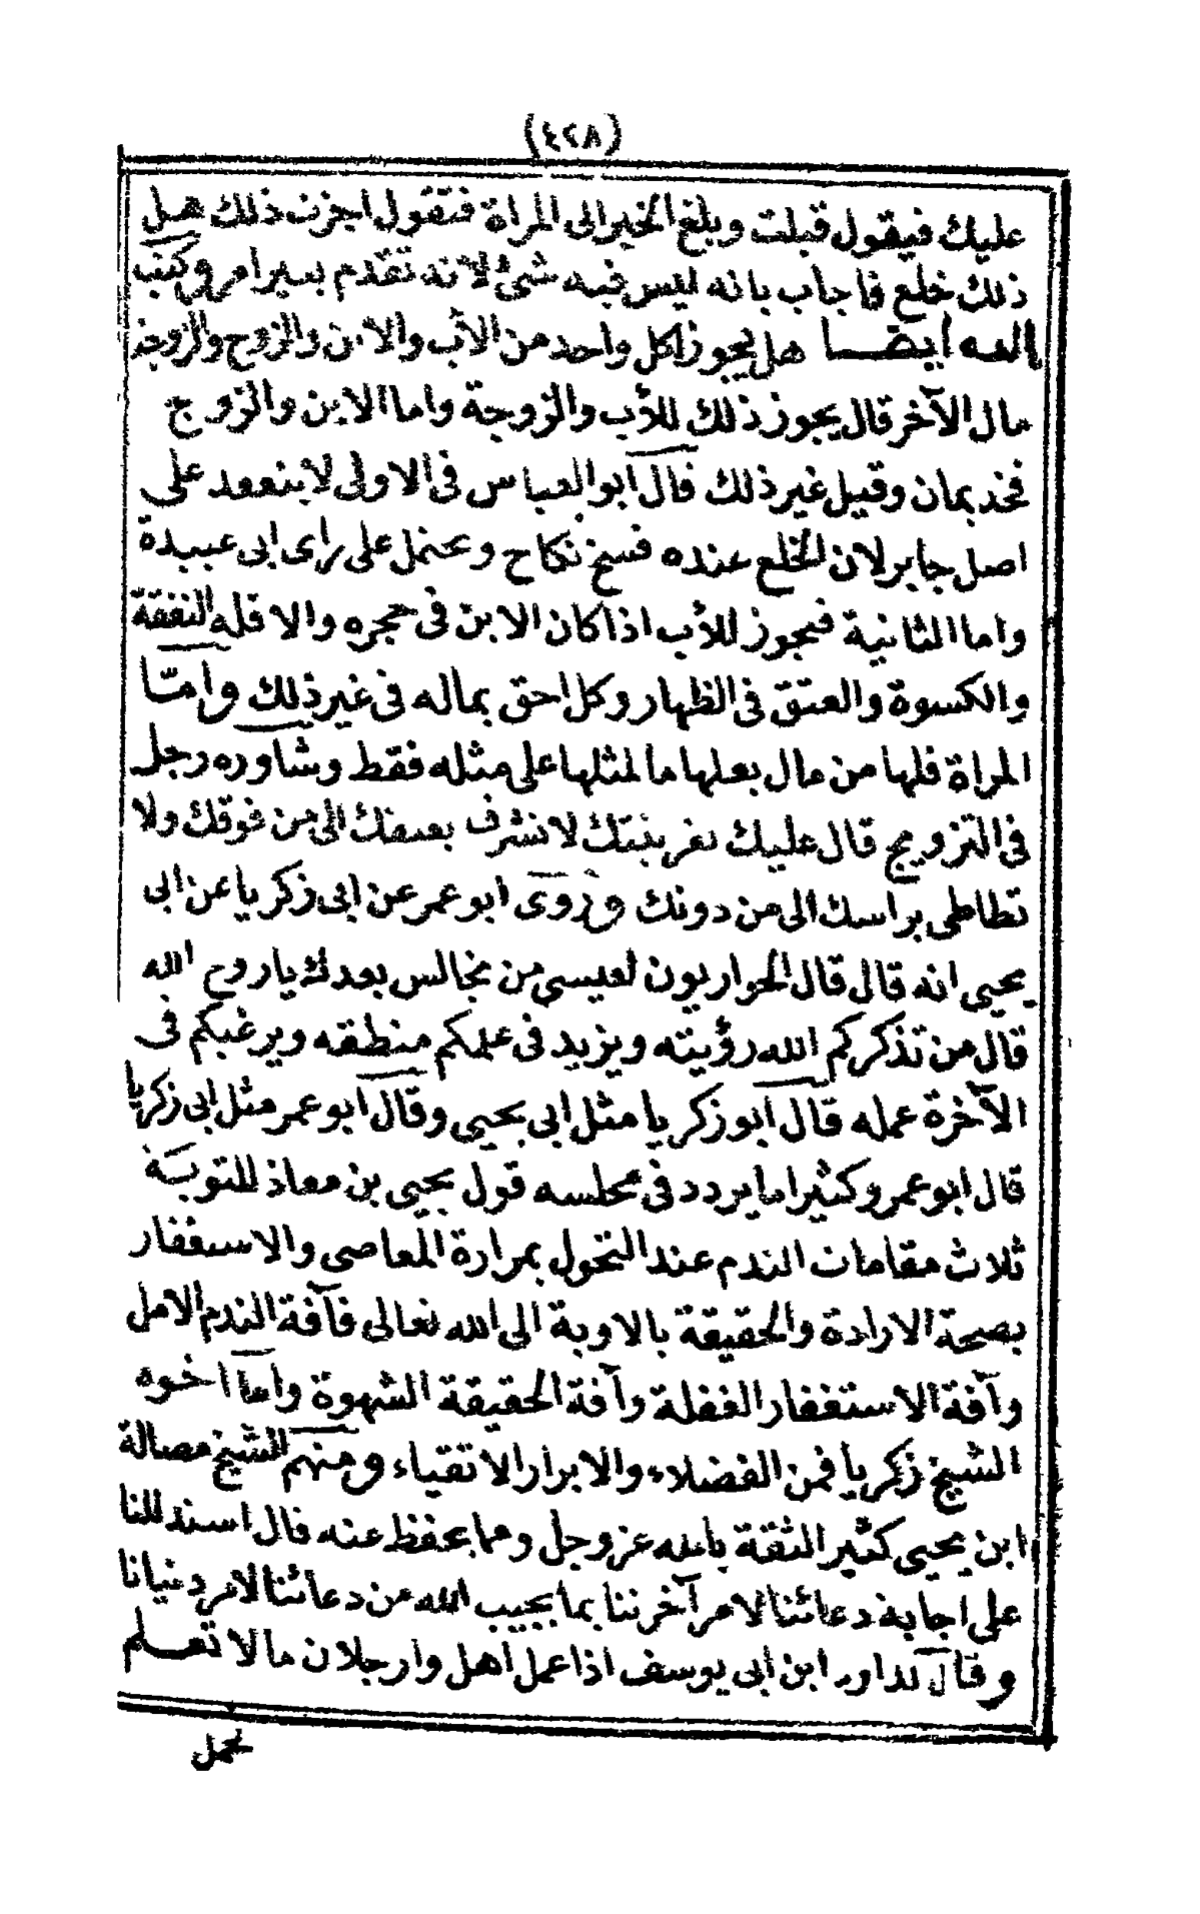 (٤٢٨)
عليك فيقول قبلت وبلغ الخبر الى المراة فتقول اجزت ذلك هل
ذلك خلع فاجاب بانه ليس فيه شئ لانه تقدم بغير امر وكتب
اليه ايضا هل يجوز لكل واحد من الأب والابن والزوج والزوجة
مال الآخر قال يجوز ذلك للأب والزوجة واما الابن والزوج
فخد يمان وقيل غير ذلك قال ابو العباس فى الاولى لا ينعقد على
اصل جابر لان الخلع عنده فسخ نكاح ويحتمل على راى ابى عبيدة
واما الثانية فيجوز للأب اذا كان الابن فى حجره والا فله النفقة
والكسوة والعتق فى الظهار وكل احق بماله فى غير ذلك وامّا
المراة فلها من مال بعلها ما لمثلها على مثله فقط وشاوره رجل
فى التزويج قال عليك بقرينتك لا تشرف بعنقك الى من فوقك ولا
تطاطى براسك الى من دونك وروى ابو عمر عن ابى زكريا عن ابى
يحيى انه قال قال الحواريون لعيسى من نجالس بعدك يا روح الله
قال من تذكركم الله رؤيته ويزيد فى علمكم منطقه ويرغبكم فى
الآخرة عمله قال ابو زكريا مثل ابى يحيى وقال ابو عمر مثل ابى زكريا
قال ابو عمر وكثيرا ما يردد فى مجلسه قول يحيى بن معاذ للتوبة
ثلاث مقامات الندم عند التحول بمرارة المعاصى والاستغفار
بصحة الارادة والحقيقة بالاوبة الى الله تعالى فآفة الندم الامل
وآفة الاستغفار الغفلة وآفة الحقيقة الشهوة واما اخوه
الشيخ زكريا فمن الفضلاء والابرار الاتقياء ومنهم الشيخ مصالة
ابن يحيى كثير الثقة بالله عز وجل ومما يحفظ عنه قال اسند للنا
على اجابة دعائنا لامر آخرتنا بما يجيب الله من دعائنا لامر دنيانا
وقال لداود ابن ابى يوسف اذا عمل اهل وارجلان مالا تعلم
تحمل